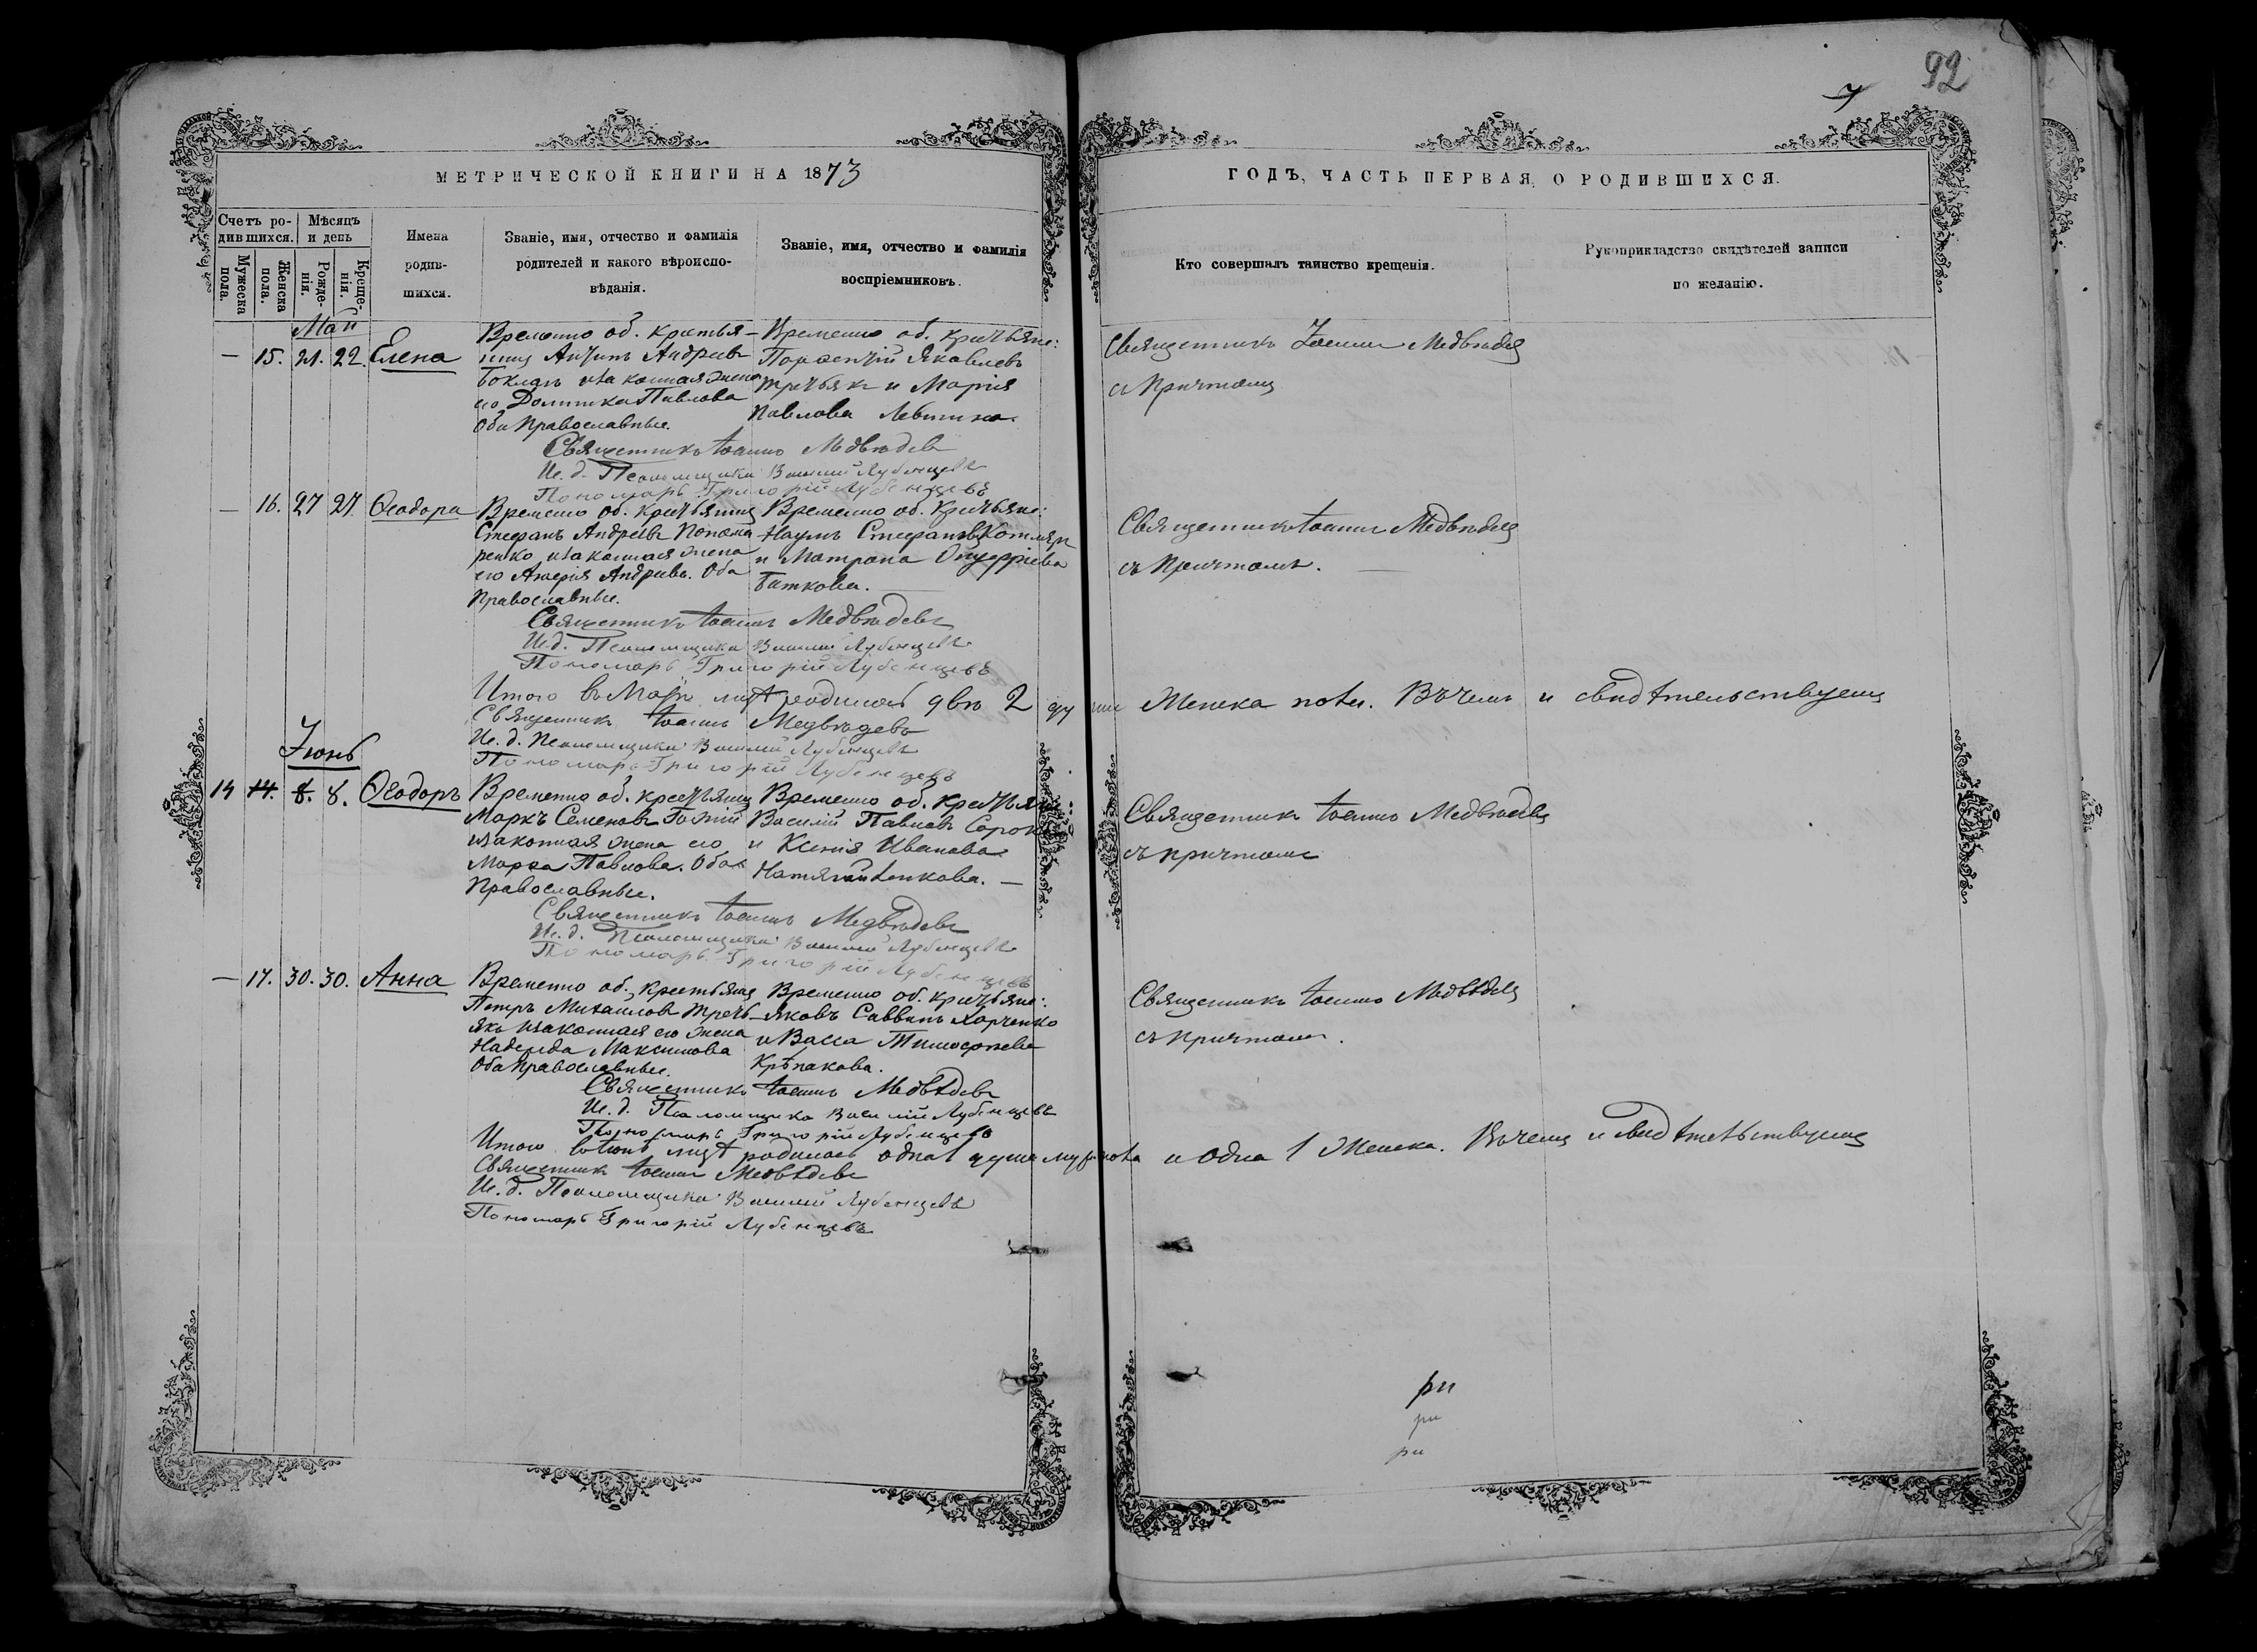 92
7
МЕТРИЧЕСКОЙ КНИГИ НА 1873
ГОДЪ, ЧАСТЬ ПЕРВАЯ, О РОДИВШИХСЯ.
Счетъ ро-
дившихся.
Мужеска пола.
Женска пола.
Мѣсяцъ
и день
Рожде-
нія.
Креще-
нія.
Имена
родив-
шихся.
Званіе, имя, отчество и фамилія
родителей и какого вѣроиспо-
вѣданія.
Званіе, имя, отчество и фамилія
воспріемниковъ.
Кто совершалъ таинство крещенія.
Рукоприкладство свидѣтелей записи
по желанію.
Май
— 15. 21. 22. Елена
Временно об. крестья-
нинъ Андреевъ
законная жена
его Домника Павлова
Оба Православные.
Временно об.
Порфирій Яковлевъ
Третьякъ и Марія
Павлова
Священникъ Іоаннъ Медвѣдевъ
съ Причтомъ
Священникъ Іоаннъ Медвѣдевъ
И. д. Псаломщика Василій Лубенцевъ
Пономарь Григорій Лубенцевъ
— 16. 27 27. Ѳеодора
Временно об.
Стефанъ Андреевъ Попома-
ренко законная жена
его Андреева. Оба
Православные.
Временно об.
Наумъ Стефановъ Котляръ
и Матрона Онуфріева
Баткова.
Священникъ Іоаннъ Медвѣдевъ
съ Причтомъ.
Священникъ Іоаннъ Медвѣдевъ
И. д. Псаломщика Василій Лубенцевъ
Пономарь Григорій Лубенцевъ
Итого въ Маѣ родилось двѣ 2 души Женска пола. Въ чемъ и свидѣтельствуемъ
Священникъ Іоаннъ Медвѣдевъ
И. д. Псаломщика Василій Лубенцевъ
Пономарь Григорій Лубенцевъ
Іюнь
14 14. 8. 8. Ѳеодоръ
Временно об.
Маркъ Семеновъ
законная жена его
Марфа Павлова. Оба
Православные.
Временно об.
Василій Павловъ
и Ксенія Иванова
Священникъ Іоаннъ Медвѣдевъ
съ причтомъ
Священникъ Іоаннъ Медвѣдевъ
И. д. Псаломщика Василій Лубенцевъ
Пономарь Григорій Лубенцевъ
— 17. 30. 30. Анна
Временно об.
Петръ Михаиловъ Треть-
якъ законная его жена
Надежда Максимова
Оба Православные.
Временно об.
Яковъ Саввинъ Харченко
и Васса Тимофеева
Крѣпакова.
Священникъ Іоаннъ Медвѣдевъ
съ Причтомъ.
Священникъ Іоаннъ Медвѣдевъ
И. д. Псаломщика Василій Лубенцевъ
Пономарь Григорій Лубенцевъ
Итого родилось одна 1 душа муж. пола и одна 1 Женска. Въ чемъ и свидѣтельствуемъ
Священникъ Іоаннъ Медвѣдевъ
И. д. Псаломщика Василій Лубенцевъ
Пономарь Григорій Лубенцевъ
ри
ри
ри